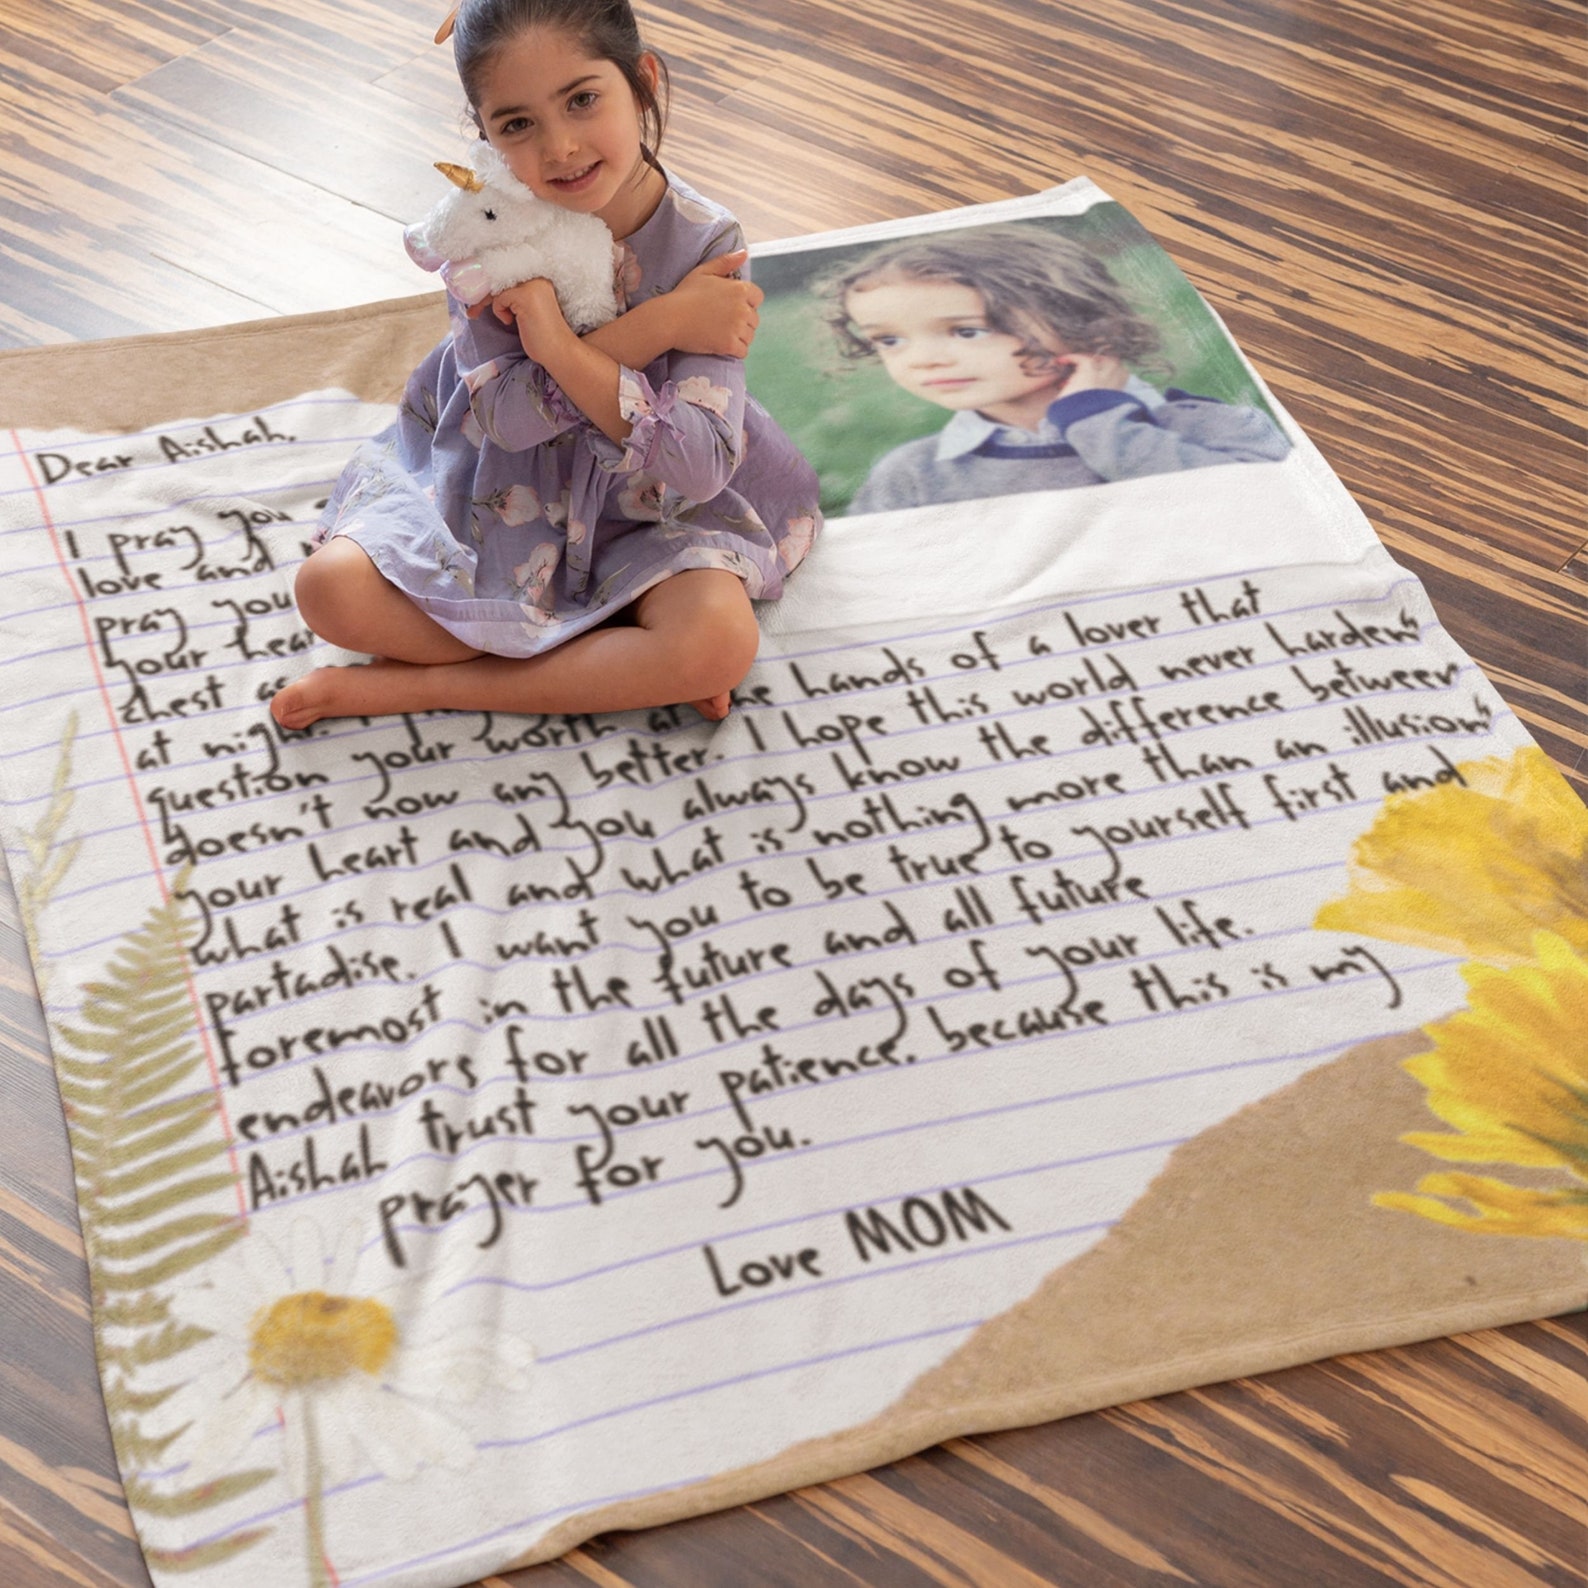 Dear Aishah.
I pray you
love and
pray you
your
chest as
at night. I
question your worth at the hands of a lover that
doesn't now any better. I hope this world never hardens
your heart and you always know the difference between
what is real and what is nothing more than an illusion
partadise. I want you to be true to yourself first and
foremost in the future and all future
endeavors for all the days of your life.
Aishah trust your patience. because this is my
prayer for you.
Love MOM